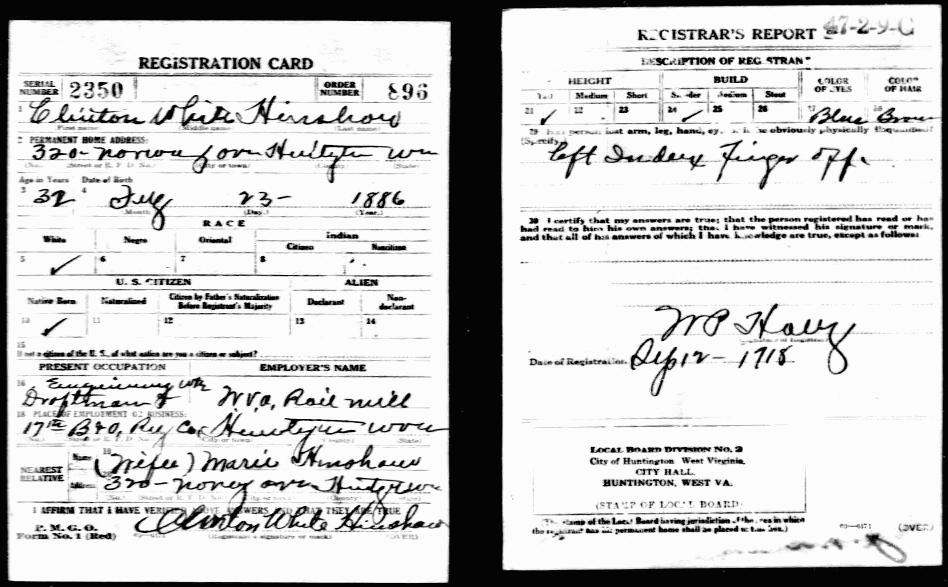 REGISTRATION CARD
SERIAL NUMBER 2350 ORDER NUMBER 896
1 Clinton White Hinshaw
(First name) (Middle name) (Last name)
2 PERMANENT HOME ADDRESS:
320
(No.) (Street or R. F. D. No.) (City or town) (County) (State)
Age in Years Date of Birth
3 32 4 23- 1886
(Month.) (Day.) (Year.)
RACE
White Negro Oriental Indian
Citizen Noncitizen
5 ✓ 6 7 8
U. S. CITIZEN ALIEN
Native Born Naturalized Citizen by Father's Naturalization Before Registrant's Majority Declarant Non-declarant
10 ✓ 11 12 13 14
15
If not a citizen of the U. S., of what nation are you a citizen or subject?
PRESENT OCCUPATION EMPLOYER'S NAME
16 Engineering
Draftman W Va. Rail mill
18 PLACE OF EMPLOYMENT OR BUSINESS:
17th B&O, Ry Co,
(No.) (Street or R. F. D. No.) (City or town) (County) (State)
NEAREST RELATIVE Name 19 (Wife) Marie Hinshaw
Address 320-
(No.) (Street or R. F. D. No.) (City or town) (County) (State)
I AFFIRM THAT I HAVE VERIFIED ABOVE ANSWERS AND THAT THEY ARE TRUE
P. M. G. O.
Form No. 1 (Red) Clinton White Hinshaw
(Registrant's signature or mark) (OVER)
REGISTRAR'S REPORT 47-2-9-C
DESCRIPTION OF REGISTRANT
HEIGHT BUILD COLOR OF EYES COLOR OF HAIR
Tall Medium Short Slender Medium Stout
21 ✓ 22 23 24 ✓ 25 26 27 Blue 28 Brown
29 Has person lost arm, leg, hand, eye, or is he obviously physically disqualified?
(Specify.)
left Index Finger off.
30 I certify that my answers are true; that the person registered has read or has
had read to him his own answers; that I have witnessed his signature or mark,
and that all of his answers of which I have knowledge are true, except as follows:
W P
(Signature of Registrar)
Date of Registration Sep 12- 1918
LOCAL BOARD DIVISION No. 2
City of Huntington West Virginia,
CITY HALL,
HUNTINGTON, WEST VA.
(STAMP OF LOCAL BOARD)
(The stamp of the Local Board having jurisdiction of the area in which
the registrant has his permanent home shall be placed in this box.)
03—6171 (OVER)